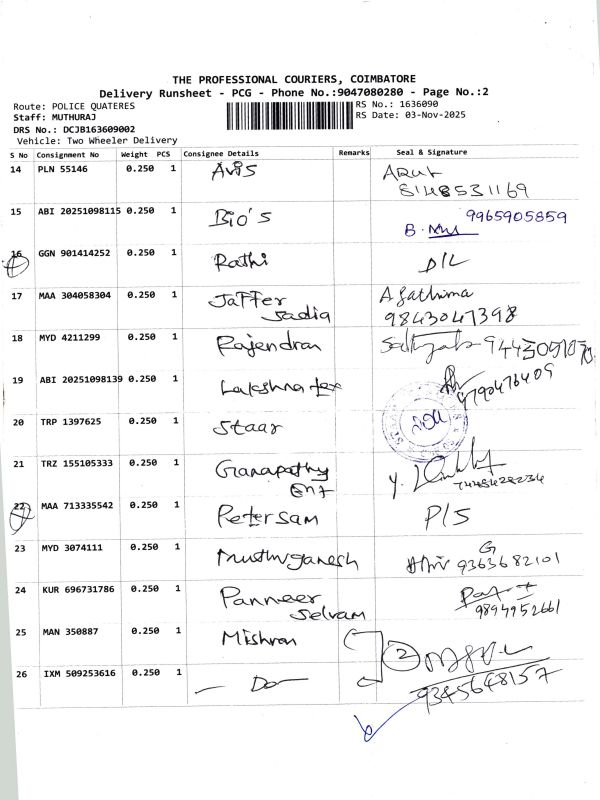 THE PROFESSIONAL COURIERS, COIMBATORE
Delivery Runsheet - PCG - Phone No.:9047080280 - Page No.:2
Route: POLICE QUATERES RS No.: 1636090
Staff: MUTHURAJ RS Date: 03-Nov-2025
DRS No.: DCJB163609002
Vehicle: Two Wheeler Delivery
S No Consignment No Weight PCS Consignee Details Remarks Seal & Signature
14 PLN 55146 0.250 1 Avis Arul
8148531169
15 ABI 20251098115 0.250 1 Bio's 9965905859
B.
16 GGN 901414252 0.250 1 Rathi D/L
17 MAA 304058304 0.250 1 Jaffer A fathima
Sadiq 9843047398
18 MYD 4211299 0.250 1 Rajendran
19 ABI 20251098139 0.250 1 9790476409
20 TRP 1397625 0.250 1 Staar
21 TRZ 155105333 0.250 1 Ganapathy Y.
Ent
22 MAA 713335542 0.250 1 Peter Sam P/S
23 MYD 3074111 0.250 1 Muthuganesh G
9363682101
24 KUR 696731786 0.250 1 Panneer
Selvam 9894952661
25 MAN 350887 0.250 1 Mishran 2
26 IXM 509253616 0.250 1 — Do — 9345648157